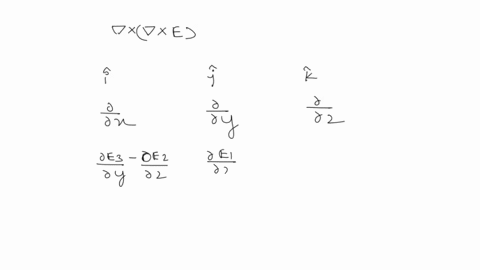 ∇×(∇×E)
î ĵ k̂
∂/∂x ∂/∂y ∂/∂z
∂E3/∂y − ∂E2/∂z ∂E1/∂